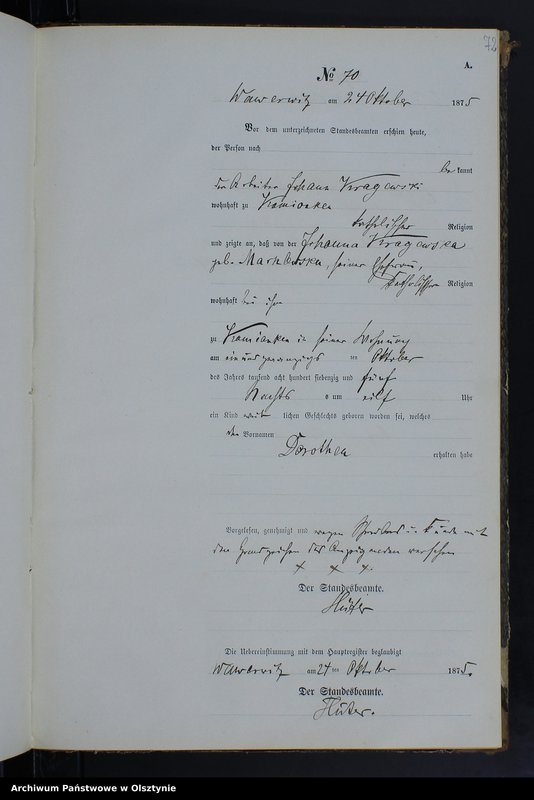 72
A.
No 70
Wawerwitz am 24 Oktober 1875
Vor dem unterzeichneten Standesbeamten erschien heute,
der Person nach
be kannt
der Arbeiter Johann Kragewski
wohnhaft zu Kamionken
katholischer Religion
und zeigte an, daß von der Johanna Kragewska
geb. Markowska, seiner Ehefrau,
katholischer Religion
wohnhaft bei ihm
zu Kamionken in seiner Wohnung
am einundzwanzigs ten Oktober
des Jahres tausend acht hundert siebenzig und fünf
Nachts um elf Uhr
ein Kind weib lichen Geschlechts geboren worden sei, welches
den Vornamen
Dorothea
erhalten habe
Vorgelesen, genehmigt und wegen Schreibens un kunde mit
den Handzeichen des Anzeigenden versehen
x x x
Der Standesbeamte.
Hüter
Die Uebereinstimmung mit dem Hauptregister beglaubigt
Wawerwitz am 24 ten Oktober 1875.
Der Standesbeamte.
Hüter.
Archiwum Państwowe w Olsztynie